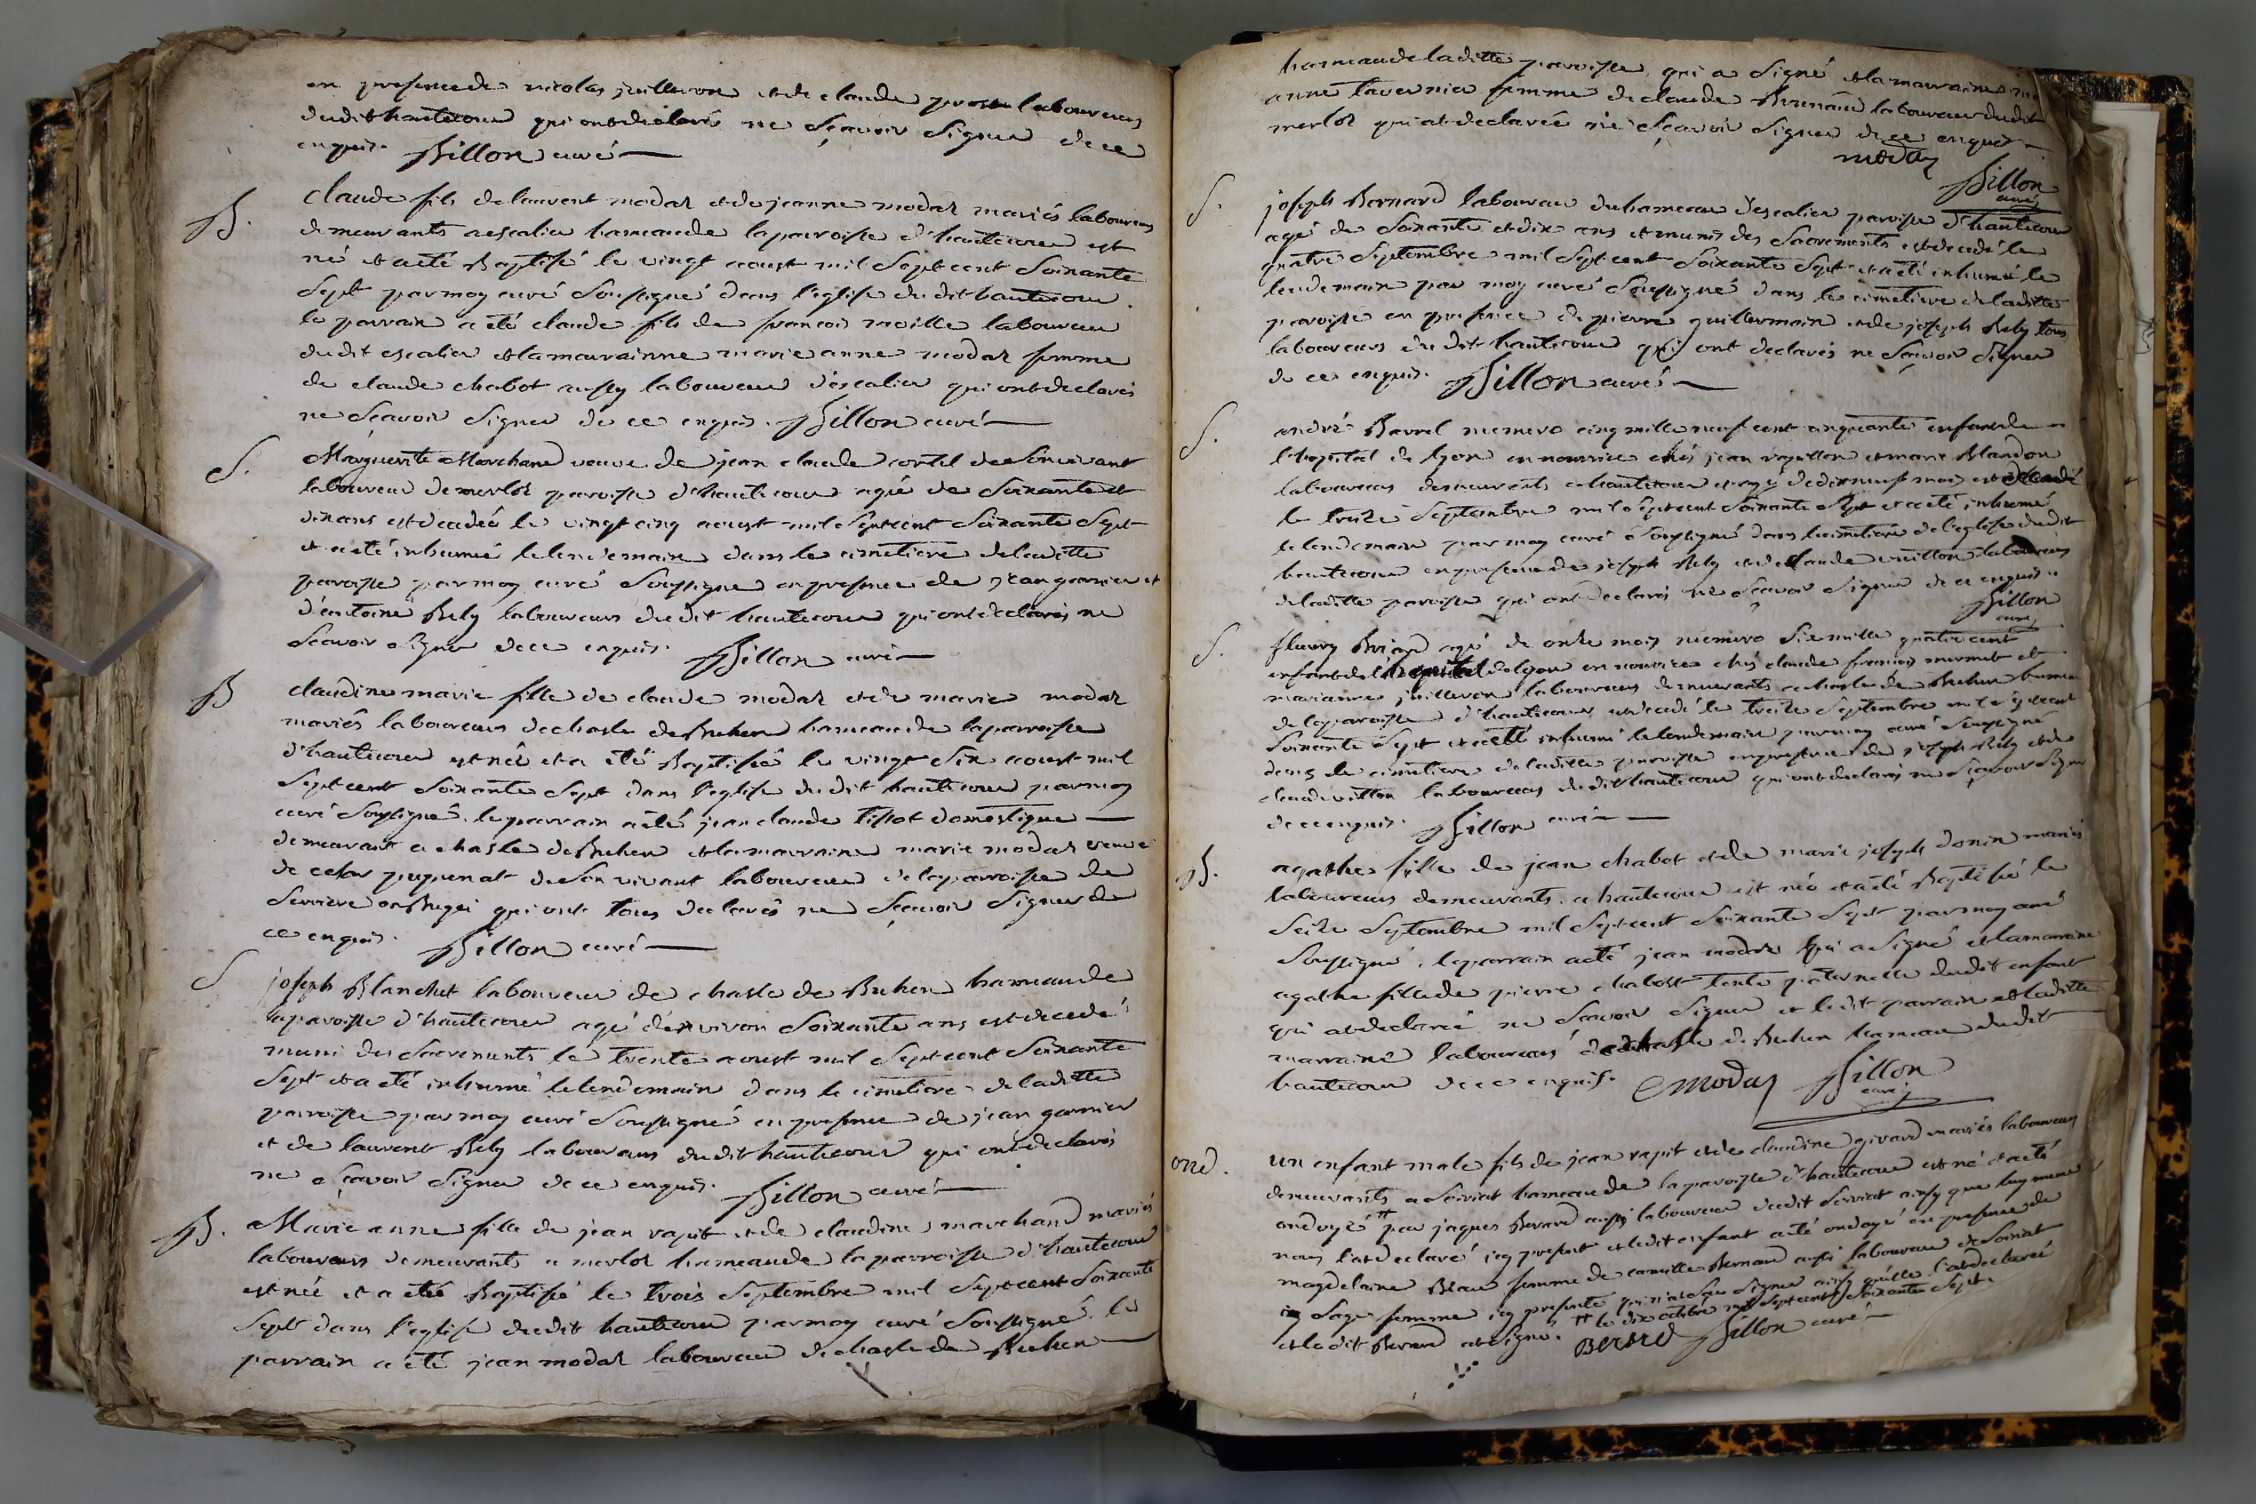 en presence de nicolas juilleron et de claude prost laboureurs
dudit hautecour qui ont déclarés ne sçavoir signer de ce
enquis. Billon curé
B.
claude fils de laurent modas et de jeanne modas mariés laboureurs
demeurants a escalier hameau de la paroisse d'hautecour est
né et a été Baptisé le vingt aoust mil sept cent soixante
sept par moy curé soussigné dans l'eglise du dit hautecour
le parrain a été claude fils de francois laboureur
dudit escalier et la marainne marie anne modas femme
de claude chabot aussy laboureur d'escalier qui ont declarés
ne sçavoir signer de ce enquis. Billon curé
S.
Marguerite Marchand veuve de jean claude de son vivant
laboureur de merlos paroisse d'hautecour agée de soixante et
dix ans est decedée le vingt cinq aoust mil sept cent soixante sept
et a été inhumée le lendemain dans le cimetiere de laditte
paroisse par moy curé soussigné en presence de jean garnier et
d'antoine Rely laboureurs dudit hautecour qui ont declarés ne
sçavoir signer de ce enquis. Billon curé
B
claudine marie fille de claude modas et de marie modas
mariés laboureurs de chasle de Buhen hameau de la paroisse
d'hautecour est née et a été Baptisée le vingt six aoust mil
sept cent soixante sept dans l'eglise du dit hautecour par moy
curé soussigné. le parrain a été jean claude tissot domestique
demeurant a chasle de Buhen et la marraine marie modas veuve
de de son vivant laboureur de la paroisse de
qui ont tous declarés ne sçavoir signer de
ce enquis. Billon curé
S
joseph Blanchet laboureur de chasle de Buhen hameau de
la paroisse d'hautecour agé d'environ soixante ans est decedé
muni des sacrements le trente aoust mil sept cent soixante
sept et a été inhumé le lendemain dans le cimetiere de laditte
paroisse par moy curé soussigné en presence de jean garnier
et de laurent Rely laboureurs dudit hautecour qui ont declarés
ne sçavoir signer de ce enquis. Billon curé
B.
Marie anne fille de jean rapit et de claudine marchand mariés
laboureurs demeurants a merlos hameau de la parroisse d'hautecour
est née et a été Baptisée le trois septembre mil sept cent soixante
sept dans l'eglise dudit hautecour par moy curé soussigné. le
parrain a été jean modas laboureur de chasle de Buhen
hameau de laditte paroisse qui a signé et la marraine
anne tavernier femme de claude Bernard laboureur dudit
merlos qui at declarée ne sçavoir signer de ce enquis
modas
Billon
curé
S.
joseph Bernard laboureur du hameau d'escalier paroisse d'hautecour
agé de soixante et dix ans et muni des sacrements est decedé le
quatre septembre mil sept cent soixante sept et a été inhumé le
lendemain par moy curé soussigné dans le cimetiere de laditte
paroisse en presence de pierre guillermain et de joseph Rely tous
laboureurs du dit hautecour qui ont declarés ne sçavoir signer
de ce enquis. Billon curé
S.
andré Barrel numero cinq mille neuf cent cinquante enfant de
l'hopital de lyon en nourrice chés jean et marie Blandon
laboureurs demeurants a hautecour et agé de dix neuf mois est decedé
le treize septembre mil sept cent soixante sept et a été inhumé
le lendemain par moy curé soussigné dans le cimetiere de l'eglise dudit
hautecour en presence de joseph Rely et de claude laboureurs
de laditte paroisse qui ont declarés ne sçavoir signer de ce enquis.
Billon
curé
S.
fleury agé de onze mois numero six mille quatre cent
enfant de l'hopital de lyon en nourrice chés claude francois et
marianne juilleron laboureurs demeurants a chasle de Buhen hameau
de la paroisse d'hautecour est decedé le treize septembre mil sept cent
soixante sept et a été inhumé le lendemain par moy curé soussigné
dans le cimetiere de laditte paroisse en presence de joseph Rely et de
claude laboureurs dudit hautecour qui ont declarés ne sçavoir signer
de ce enquis. Billon curé
B.
agathe fille de jean chabot et de marie joseph donin mariés
laboureurs demeurants a hautecour est née et a été Baptisée le
seize septembre mil sept cent soixante sept par moy curé
soussigné. le parrain a été jean modas qui a signé et la marraine
agathe fille de pierre chabot tente paternelle dudit enfant
qui at declarée ne sçavoir signer et le dit parrain et laditte
marraine laboureurs de chasle de Buhen hameau dudit
hautecour de ce enquis. Modas Billon
curé
ond.
un enfant male fils de jean rapit et de claudine girard mariés laboureurs
demeurants a soiriat hameau de la paroisse d'hautecour est né et a été
ondoyé par jaques Berard aussi laboureur dudit soiriat ainsy que luy meme
nous l'at declaré icy present et ledit enfant a été ondoyé en presence de
magdelaine femme de camille Bernard aussi laboureur de soiriat
sage femme icy presente qui n'at sçu signer ainsy qu'elle l'at declarée
et ledit Berard at signé. le dix octobre mil sept cent soixante sept.
Berard Billon curé